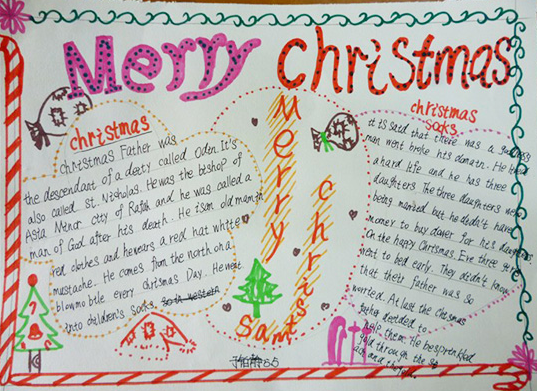 Merry christmas
christmas
christmas Father was
the descendant of a deety called Odin. It's
also called St. Nisholas. He was the bishop of
Asia Menor city of Rafah and he was called a
man of God after his death. He is an old man in
red clothes and he wears a red hat white
mustache. He comes from the north on a
blowmobile every chrismas Day. He went
into children's socks.
Merry
christmas
Santa
christmas
socks
it is said that there was a
man went broke his domath. He lived
a hard life and he has three
daughters The three daughters were
being married but he dedn't have
money to buy dower for his daughters
On the happy Chrismas Eve three girls
went to bed early. They didn't know
that their father was so
worried. At last the Chrismas
father decided to
help them. He besprinkled
gold through the